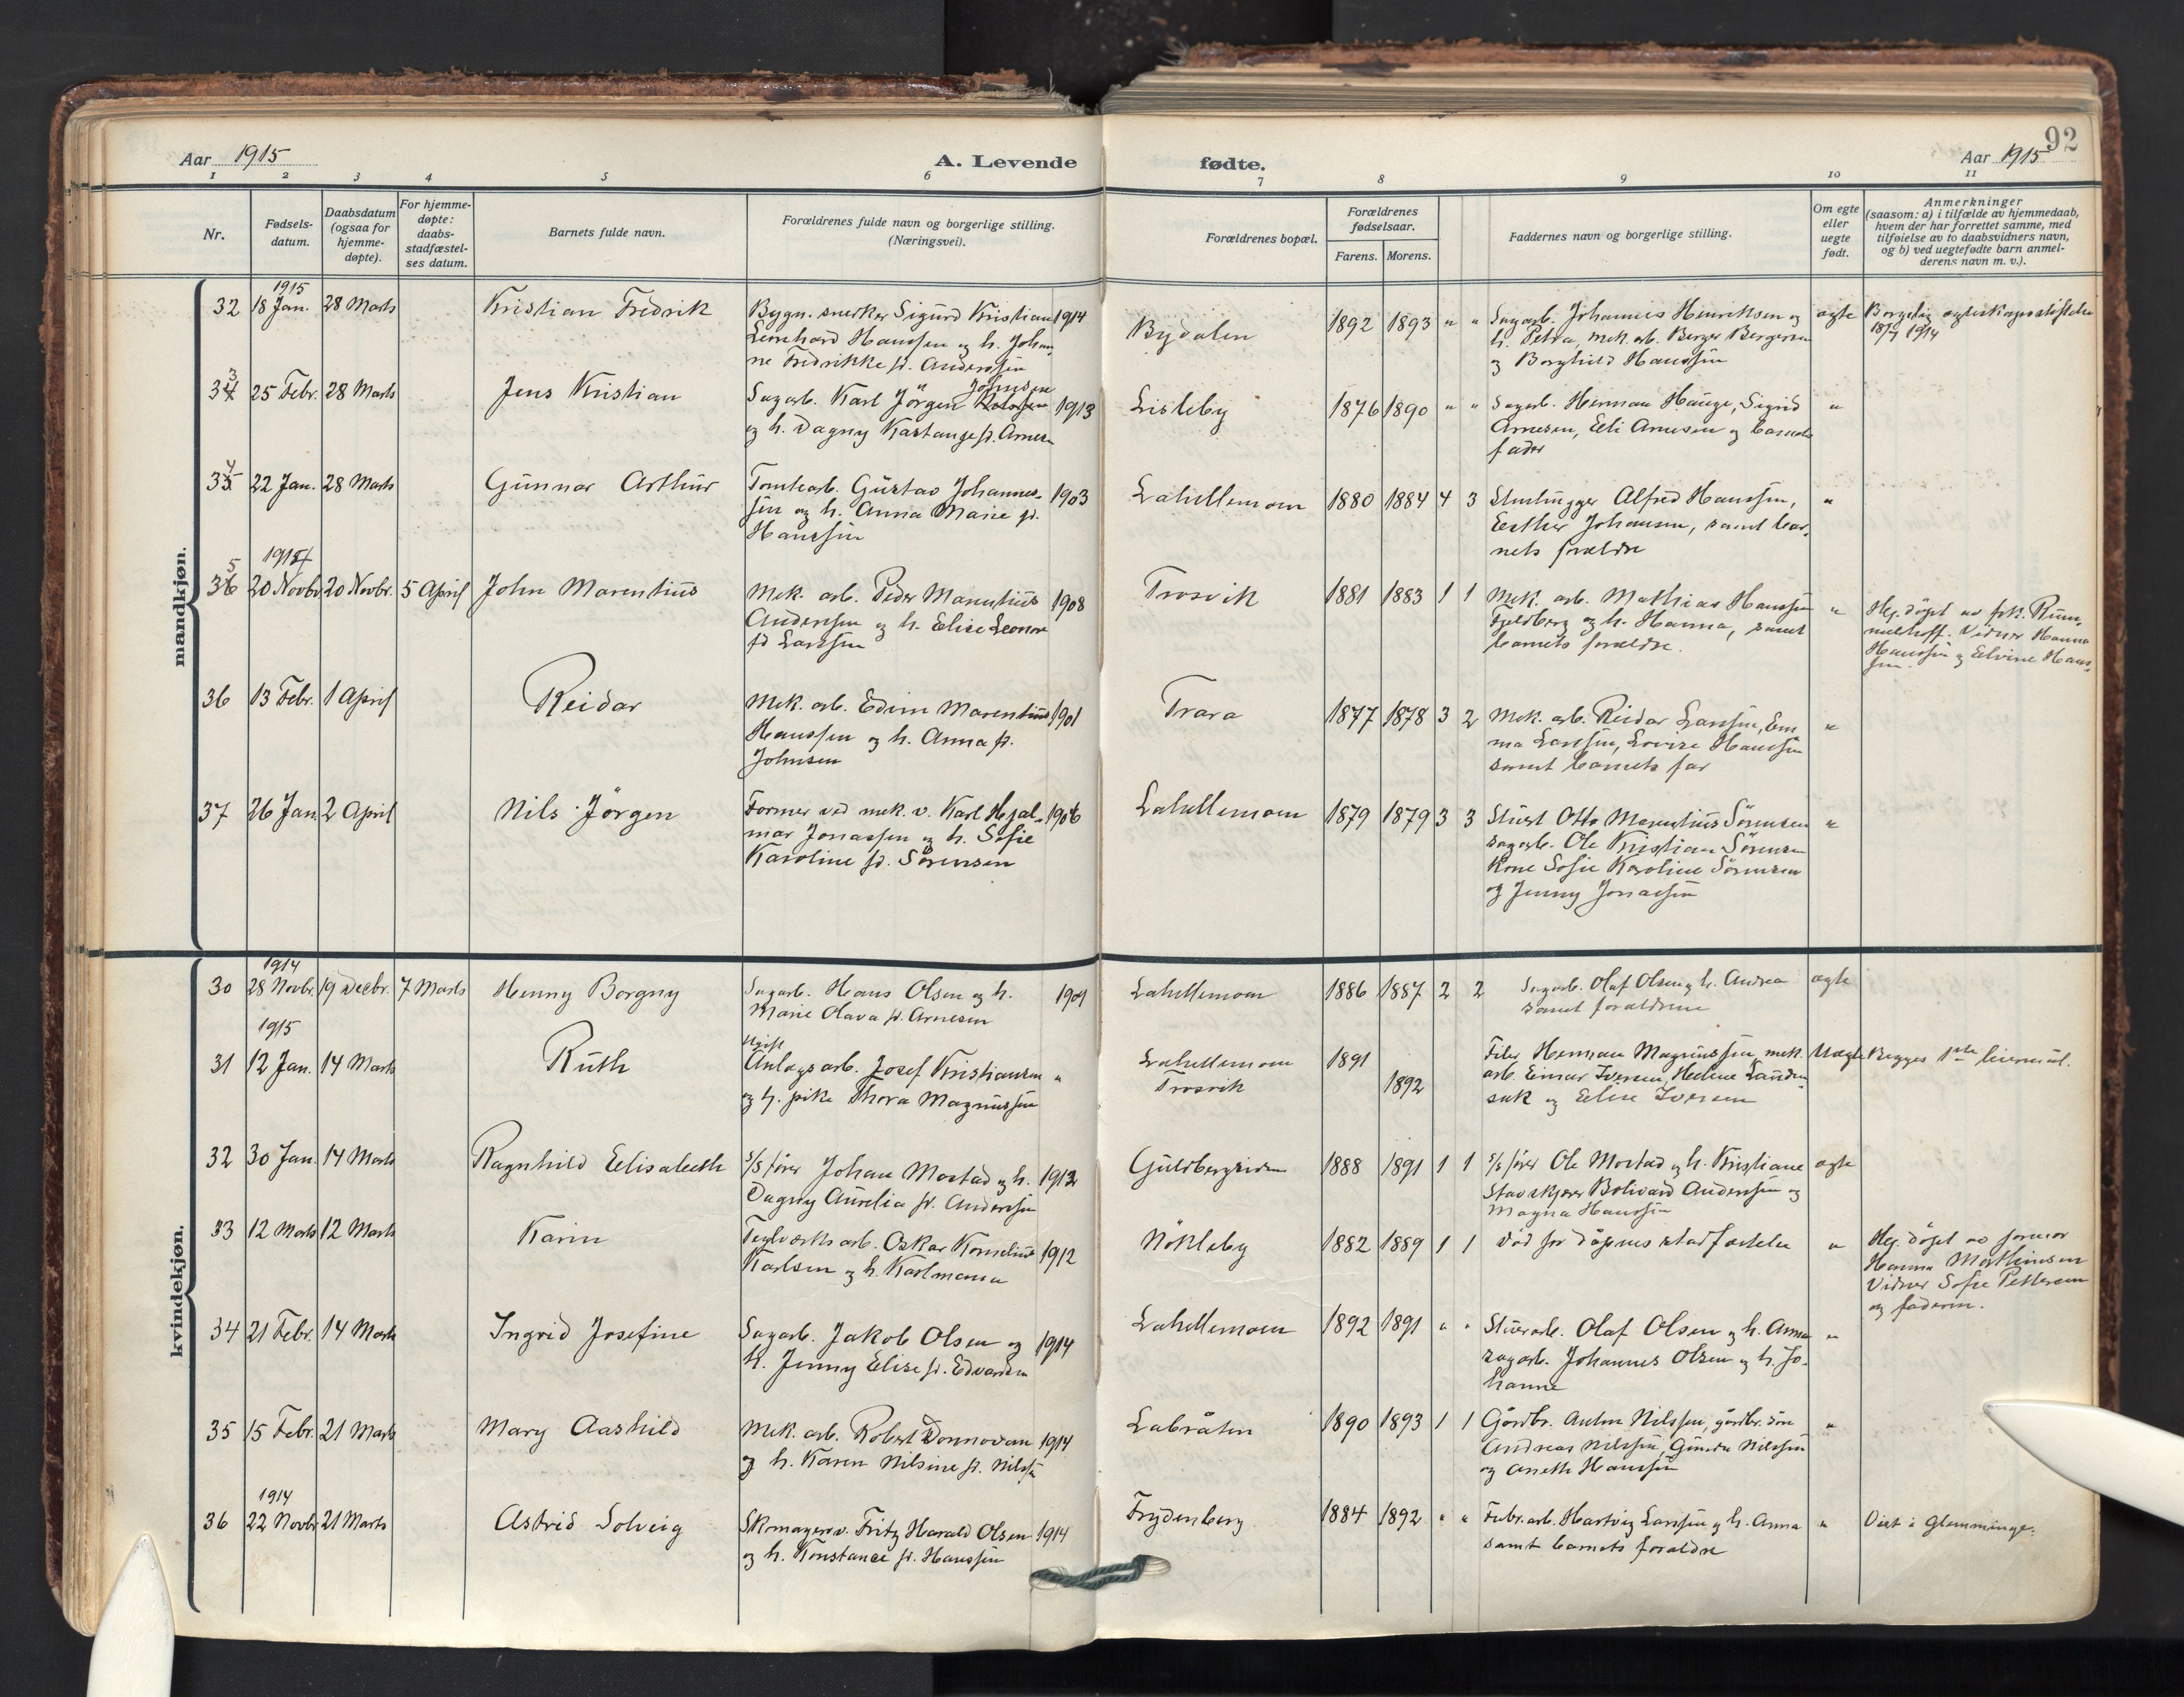 92
Aar 1915
A. Levende
fødte.
Aar 1915
1 2 3 4 5 6 7 8 9 10 11
Nr.
Fødsels-
datum.
Daabsdatum
(ogsaa for
hjemme-
døpte).
For hjemme-
døpte:
daabs-
stadfæstel-
ses datum.
Barnets fulde navn.
Forældrenes fulde navn og borgerlige stilling.
(Næringsvei).
Forældrenes bopæl.
Forældrenes
fødselsaar.
Farens. Morens.
Faddernes navn og borgerlige stilling.
Om egte
eller
uegte
født.
Anmerkninger
(saasom: a) i tilfælde av hjemmedaab,
hvem der har forrettet samme, med
tilføielse av to daabsvidners navn,
og b) ved uegtefødte barn anmel-
derens navn m. v.).
mandkjøn.
1915
32 18 Jan. 28 Marts Kristian Fredrik
Bygn. snerker Sigurd Kristian 1914
Leonhard Hanssen og h. Johan-
ne Fredrikke f. Anderssen
Bydalen 1892 1893 " "
Sagarb. Johannes Henriksen og
h. Petra, mek. arb. Berger Bergersen
og Borghild Hanssen
egte
Borgerlig egteskapsstiftelse
18/7 1914
3
34 25 Febr. 28 Marts Jens Kristian
Johnsen
Sagarb. Karl Jörgen 1913
og h. Dagny Kastange f. Arnesen
Lisleby 1876 1890 " "
Sagarb. Herman Hauge, Sigrid
Arnesen, Elli Arnesen og barnets
fader
"
4
35 22 Jan. 28 Marts Gunnar Arthur
Tomtearb. Gustav Johannes- 1903
sen og h. Anna Marie f.
Hanssen
Lahellemoen 1880 1884 4 3
Alfred Hanssen,
Esther Johansen, samt bar-
nets forældre
"
1914
5
36 20 Novbr. 20 Novbr. 5 April John Marentius
Mek. arb. Peder Marentius 1908
Anderssen og h. Elise Leonore
fd Larssen
Trosvik 1881 1883 1 1
Mek. arb. Mathias Hanssen
Fjeldberg og h. Hanna, samt
barnets forældre.
"
Hj. döpt av frk. Rum-
melhoff. Vidner Hanna
Hanssen og Elvine Hans-
sen.
36 13 Febr. 1 April Reidar
Mek. arb. Edvin Marentius 1901
Hanssen og h. Anna f.
Johnsen
Trara 1877 1878 3 2
Mek. arb. Reidar Larssen, Em-
ma Larssen, Lovise Hanssen
samt barnets far
"
37 26 Jan. 2 April Nils Jörgen
Former ved mek. v. Karl Hjal- 1906
mar Jonassen og h. Sofie
Karoline f. Sörensen
Lahellemoen 1879 1879 3 3
Otto Marentius Sörensen
sagarb. Ole Kristian Sörensen
Kone Sofie Karoline Sörensen
og Jenny Jonassen
"
kvindekjøn.
1914
30 28 Novbr. 19 Decbr. 7 Marts Henny Borgny
Sagarb. Hans Olsen og h. 1909
Marie Olava f. Arnesen
Lahellemoen 1886 1887 2 2
Sagarb. Olaf Olsen og h. Andrea
samt forældrene
egte
1915
31 12 Jan. 14 Marts Ruth
Ugift
Anlægsarb. Josef Kristiansen "
og t. pike Thora Magnussen
Lahellemoen 1891
Trosvik 1892
Filer Herman Magnussen, mek.
arb. Einar Iversen, Helene Sanden-
suk og Elise Iversen
Uegte
Begges 1ste leiermaal.
32 30 Jan. 14 Marts Ragnhild Elisabeth
s/s fører Johan Mostad og h. 1912
Dagny Aurelia f. Anderssen
Guldbergsiden 1888 1891 1 1
s/s fører Ole Mostad og h. Kristiane
Stavskjærer Bolivard Anderssen og
Magna Hanssen
egte
33 12 Marts 12 Marts Karin
Teglverks arb. Oskar Kornelius 1912
Karlsen og h. Karlmana
Nökleby 1882 1889 1 1
Död för dåpens stadfæstelse
"
Hj. döpt av jormor
Hanna Mathiesen
Vidner Sofie Pettersen
og faderen.
34 21 Febr. 14 Marts Ingrid Josefine
Sagarb. Jakob Olsen og 1914
h. Jenny Elise f. Edvardsen
Lahellemoen 1892 1891 " "
Stuerarb. Olaf Olsen og h. Anna
sagarb. Johannes Olsen og h. Jo-
hanne
"
35 15 Febr. 21 Marts Mary Aashild
Mek. arb. Robert Donnovan 1914
og h. Karen Nilsine f. Nilssen
Labråten 1890 1893 1 1
Gårdbr. Anton Nilssen, gårdbr. sön
Andreas Nilssen, Gunda Nilssen
og Aneth Hanssen
"
1914
36 22 Novbr. 21 Marts Astrid Solveig
Skomagersv. Fritz Harald Olsen 1914
og h. Konstance f. Hanssen
Frydenberg 1884 1892 " "
Fabr. arb. Hartvig Larssen og h. Anna
samt barnets forældre
"
Viet i Glemminge.